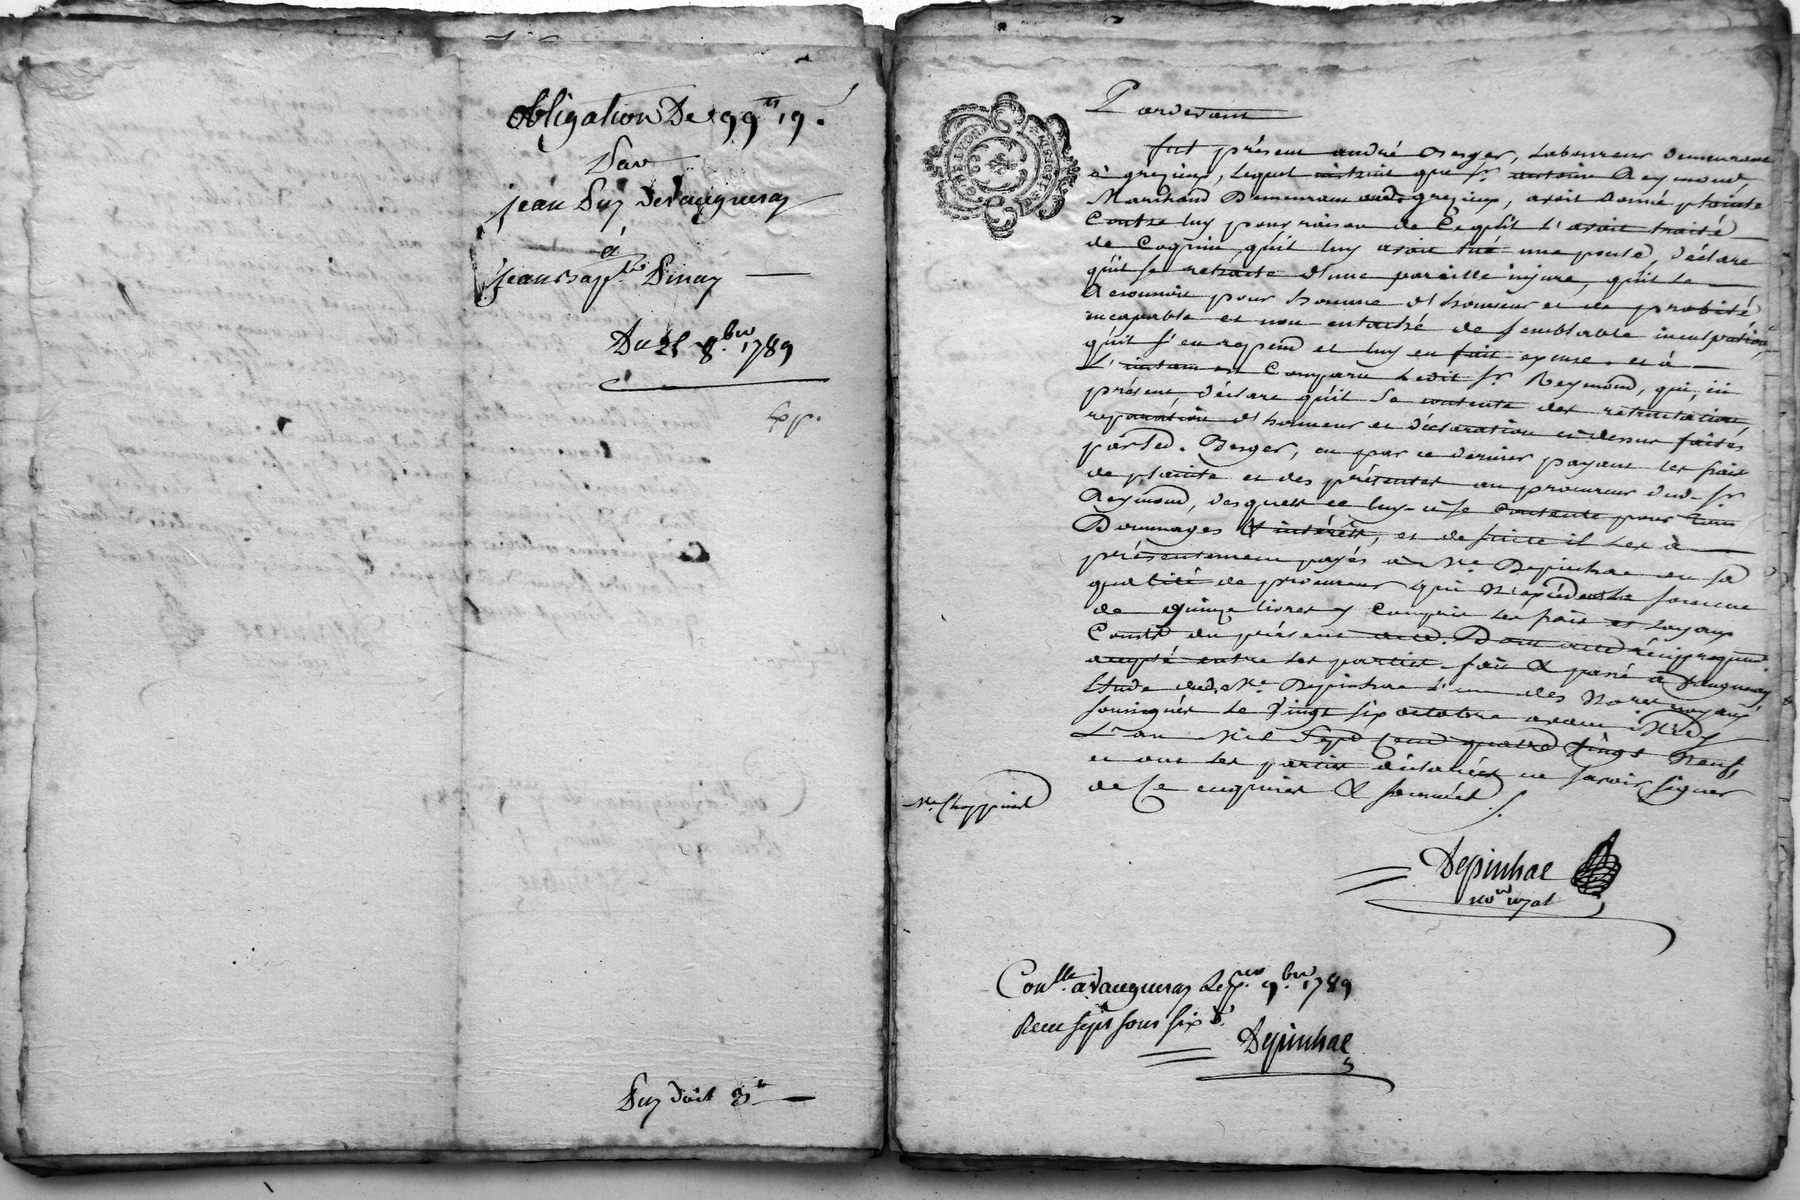 obligation De 99ᵗᵗ 19ˢ.
Par
jean Puy devaugneray
à
jean Bapᵗᵉ Pinay
Du 25 8.bre 1789
Exp.
Puy doit 3ᵗᵗ
Pardevant
fut présent andré Berger, Laboureur demeurant
à grezieux, Lequel instruit que sr. antoine Reymond
Marchand Demeurant audt grezieux, avoit donné plainte
Contre luy pour raison de Ce qu'il l'avoit traité
de Coquin, qu'il luy avoit tué une poule, déclare
qu'il se retracte d'une pareille injure, qu'il le
Reconnoit pour homme d'honneur et de probité,
incapable et non entaché de semblable inculpation,
qu'il s'en repend et luy en fait excuse. et à
L'instant est Comparu Ledit sr. Reymond, qui, ici
présent, déclare qu'il se contente des retractation,
reparation d'honneur et déclaration cidessus faites
par led. Berger, en par ce dernier payant les frais
de plainte et des présentes au procureur dud. sr
Reymond, desquels ce luy-ci se contente pour tous
Dommages & intérêts, et de suite il les à
présentement payés à Me Depinhac en sa
qualité de procureur la somme
de quinze livres y Compris les frais et Loyaux
Couts du présent acte. Dont acte réciproquemt
accepté entre les parties. fait & passé à Vaugneray
Etude dud. Me Depinhac L'un des Nores royaux
soussignés le vingt six octobre avant Midy
L'an Mil Sept Cent quatre Vingt Neuf,
et ont les parties déclarées ne savoir signer
de Ce enquises & sommées.
Me Choppinet
Depinhac
nore royal
Conlle. a Vaugneray Le 9.bre 1789
Recu sept sous six d.
Depinhac